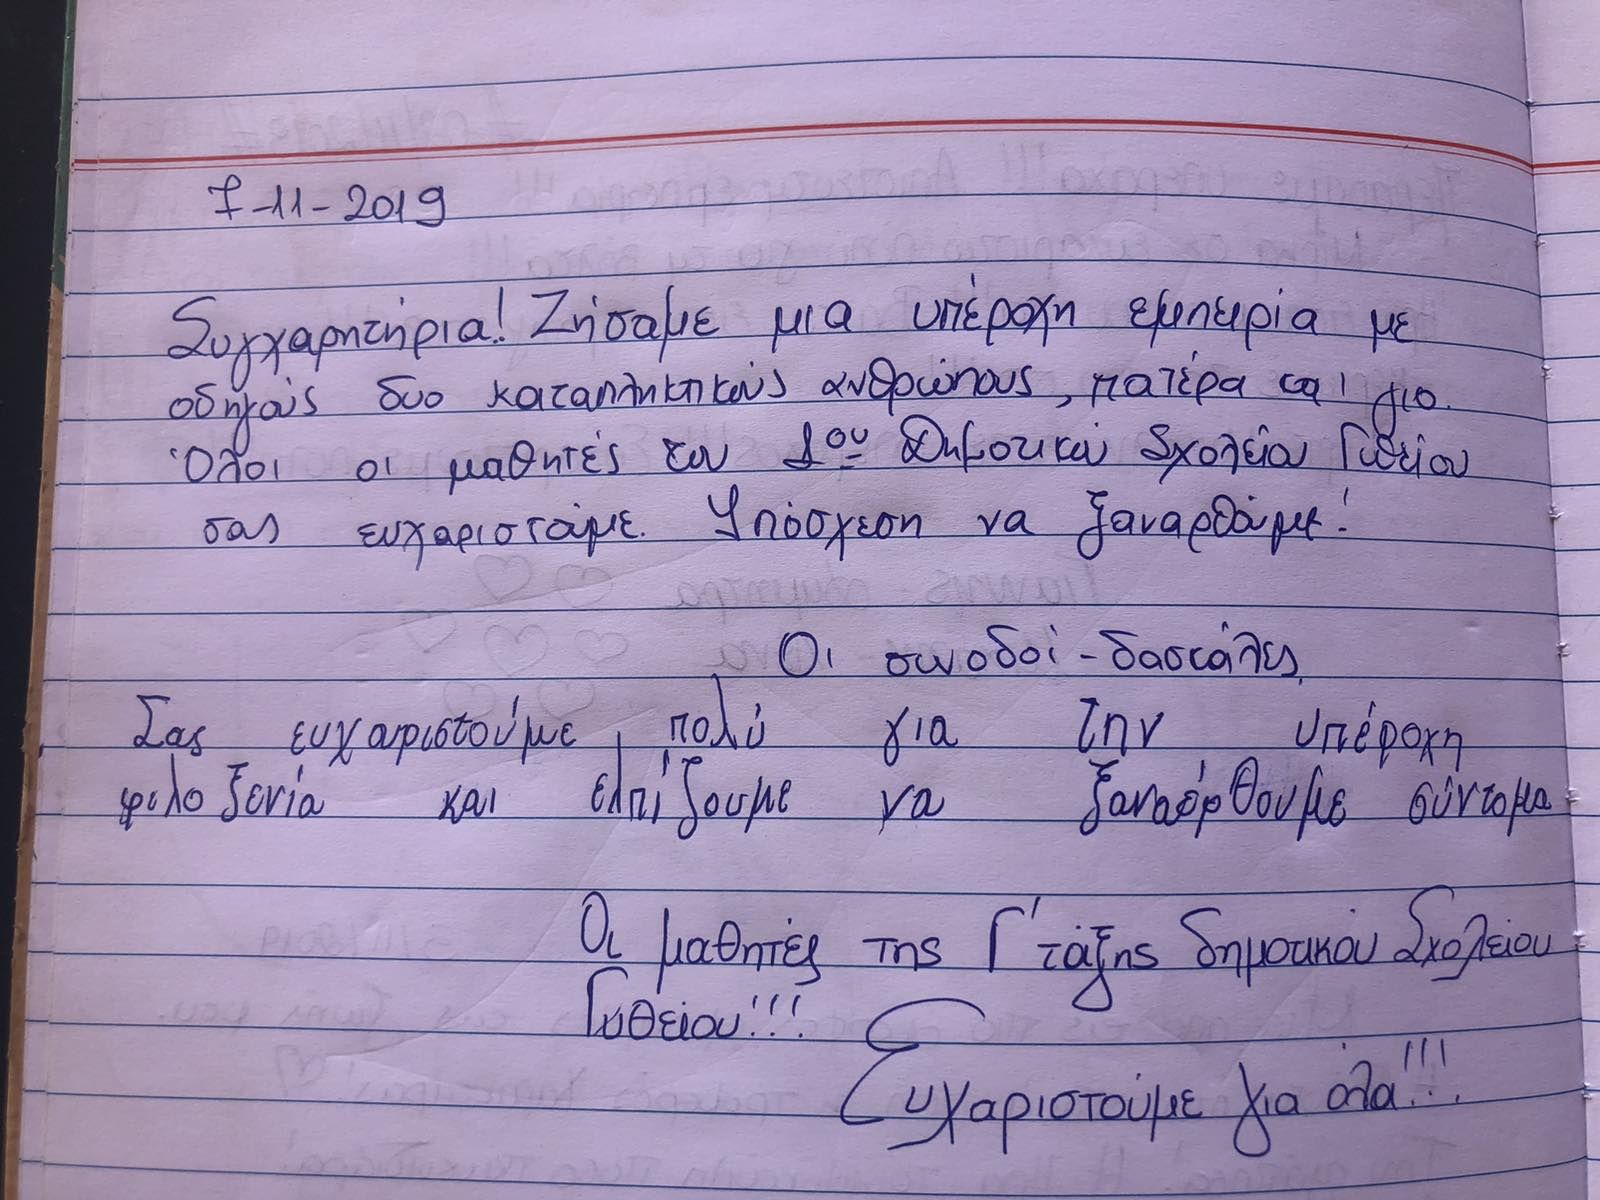 7-11-2019
Συγχαρητήρια! Ζήσαμε μια υπέροχη εμπειρία με
οδηγούς δυο καταπληκτικούς ανθρώπους, πατέρα και γιο.
Όλοι οι μαθητές του 1ου Δημοτικού Σχολείου Γυθείου
σας ευχαριστούμε. Υπόσχεση να ξαναρθούμε!
Οι συνοδοί - δασκάλες.
Σας ευχαριστούμε πολύ για την υπέροχη
φιλοξενία και ελπίζουμε να ξαναέρθουμε σύντομα
Οι μαθητές της Γ' τάξης δημοτικού Σχολείου
Γυθείου!!!
Ευχαριστούμε για όλα!!!